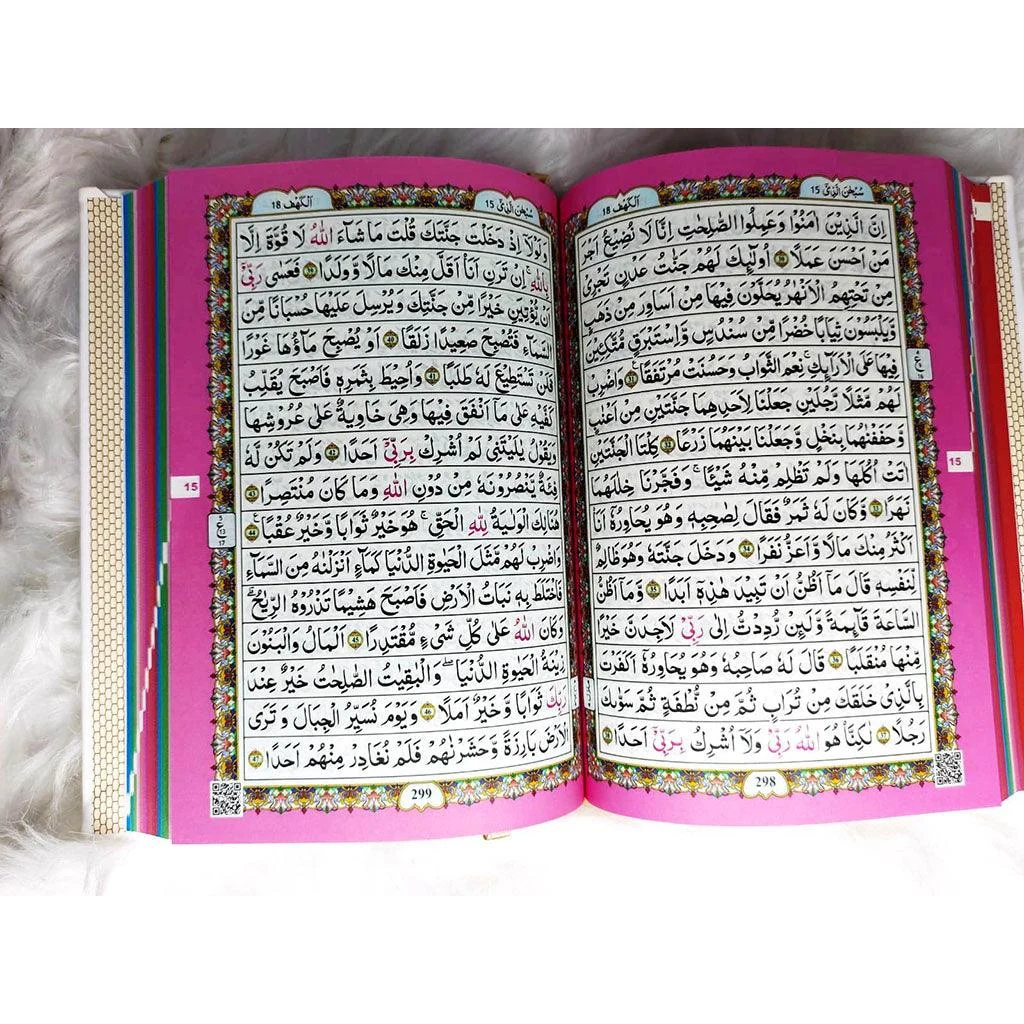 سُبْحٰنَ الَّذِیْۤ 15
اَلْكَهْف 18
اِنَّ الَّذِيْنَ اٰمَنُوْا وَعَمِلُوا الصّٰلِحٰتِ اِنَّا لَا نُضِيْعُ اَجْرَ
مَنْ اَحْسَنَ عَمَلًا 30 اُولٰٓئِكَ لَهُمْ جَنّٰتُ عَدْنٍ تَجْرِيْ
مِنْ تَحْتِهِمُ الْاَنْهٰرُ يُحَلَّوْنَ فِيْهَا مِنْ اَسَاوِرَ مِنْ ذَهَبٍ
وَّيَلْبَسُوْنَ ثِيَابًا خُضْرًا مِّنْ سُنْدُسٍ وَّاِسْتَبْرَقٍ مُّتَّكِـِٕيْنَ
فِيْهَا عَلَى الْاَرَآئِكِ ؕ نِعْمَ الثَّوَابُ وَحَسُنَتْ مُرْتَفَقًا 31 وَاضْرِبْ
لَهُمْ مَّثَلًا رَّجُلَيْنِ جَعَلْنَا لِاَحَدِهِمَا جَنَّتَيْنِ مِنْ اَعْنَابٍ
وَّحَفَفْنٰهُمَا بِنَخْلٍ وَّجَعَلْنَا بَيْنَهُمَا زَرْعًا 32 كِلْتَا الْجَنَّتَيْنِ
اٰتَتْ اُكُلَهَا وَلَمْ تَظْلِمْ مِّنْهُ شَيْـًٔا ۙ وَّفَجَّرْنَا خِلٰلَهُمَا
نَهَرًا 33 وَّكَانَ لَهٗ ثَمَرٌ ۚ فَقَالَ لِصَاحِبِهٖ وَهُوَ يُحَاوِرُهٗٓ اَنَا
اَكْثَرُ مِنْكَ مَالًا وَّاَعَزُّ نَفَرًا 34 وَدَخَلَ جَنَّتَهٗ وَهُوَ ظَالِمٌ
لِّنَفْسِهٖ ۚ قَالَ مَآ اَظُنُّ اَنْ تَبِيْدَ هٰذِهٖٓ اَبَدًا 35 وَّمَآ اَظُنُّ
السَّاعَةَ قَآئِمَةً ۙ وَّلَئِنْ رُّدِدْتُّ اِلٰى رَبِّيْ لَاَجِدَنَّ خَيْرًا
مِّنْهَا مُنْقَلَبًا 36 قَالَ لَهٗ صَاحِبُهٗ وَهُوَ يُحَاوِرُهٗٓ اَكَفَرْتَ
بِالَّذِيْ خَلَقَكَ مِنْ تُرَابٍ ثُمَّ مِنْ نُّطْفَةٍ ثُمَّ سَوّٰىكَ
رَجُلًا 37 لٰكِنَّا۠ هُوَ اللّٰهُ رَبِّيْ وَلَآ اُشْرِكُ بِرَبِّيْٓ اَحَدًا 38
15
298
سُبْحٰنَ الَّذِیْۤ 15
اَلْكَهْف 18
وَلَوْلَآ اِذْ دَخَلْتَ جَنَّتَكَ قُلْتَ مَا شَآءَ اللّٰهُ ۙ لَا قُوَّةَ اِلَّا
بِاللّٰهِ ۚ اِنْ تَرَنِ اَنَا اَقَلَّ مِنْكَ مَالًا وَّوَلَدًا 39 فَعَسٰى رَبِّيْٓ
اَنْ يُّؤْتِيَنِ خَيْرًا مِّنْ جَنَّتِكَ وَيُرْسِلَ عَلَيْهَا حُسْبَانًا مِّنَ
السَّمَآءِ فَتُصْبِحَ صَعِيْدًا زَلَقًا 40 اَوْ يُصْبِحَ مَآؤُهَا غَوْرًا
فَلَنْ تَسْتَطِيْعَ لَهٗ طَلَبًا 41 وَاُحِيْطَ بِثَمَرِهٖ فَاَصْبَحَ يُقَلِّبُ
كَفَّيْهِ عَلٰى مَآ اَنْفَقَ فِيْهَا وَهِيَ خَاوِيَةٌ عَلٰى عُرُوْشِهَا
وَيَقُوْلُ يٰلَيْتَنِيْ لَمْ اُشْرِكْ بِرَبِّيْٓ اَحَدًا 42 وَلَمْ تَكُنْ لَّهٗ
فِئَةٌ يَّنْصُرُوْنَهٗ مِنْ دُوْنِ اللّٰهِ وَمَا كَانَ مُنْتَصِرًا 43
هُنَالِكَ الْوَلَايَةُ لِلّٰهِ الْحَقِّ ؕ هُوَ خَيْرٌ ثَوَابًا وَّخَيْرٌ عُقْبًا 44
وَاضْرِبْ لَهُمْ مَّثَلَ الْحَيٰوةِ الدُّنْيَا كَمَآءٍ اَنْزَلْنٰهُ مِنَ السَّمَآءِ
فَاخْتَلَطَ بِهٖ نَبَاتُ الْاَرْضِ فَاَصْبَحَ هَشِيْمًا تَذْرُوْهُ الرِّيٰحُ ؕ
وَكَانَ اللّٰهُ عَلٰى كُلِّ شَيْءٍ مُّقْتَدِرًا 45 اَلْمَالُ وَالْبَنُوْنَ
زِيْنَةُ الْحَيٰوةِ الدُّنْيَا ۚ وَالْبٰقِيٰتُ الصّٰلِحٰتُ خَيْرٌ عِنْدَ
رَبِّكَ ثَوَابًا وَّخَيْرٌ اَمَلًا 46 وَيَوْمَ نُسَيِّرُ الْجِبَالَ وَتَرَى
الْاَرْضَ بَارِزَةً ۙ وَّحَشَرْنٰهُمْ فَلَمْ نُغَادِرْ مِنْهُمْ اَحَدًا 47
15
5
ع
13
17
299